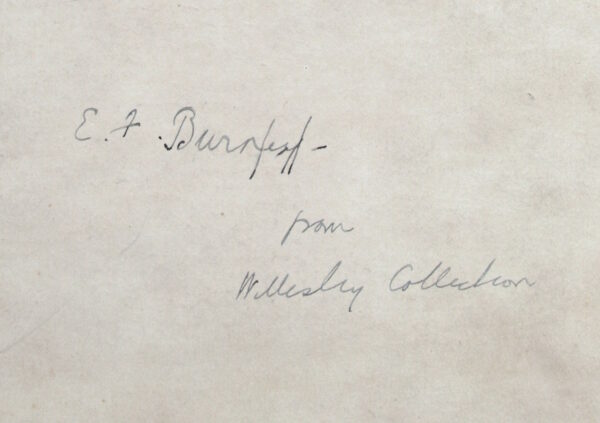 E. F. Burney -
from
Willesley Collection